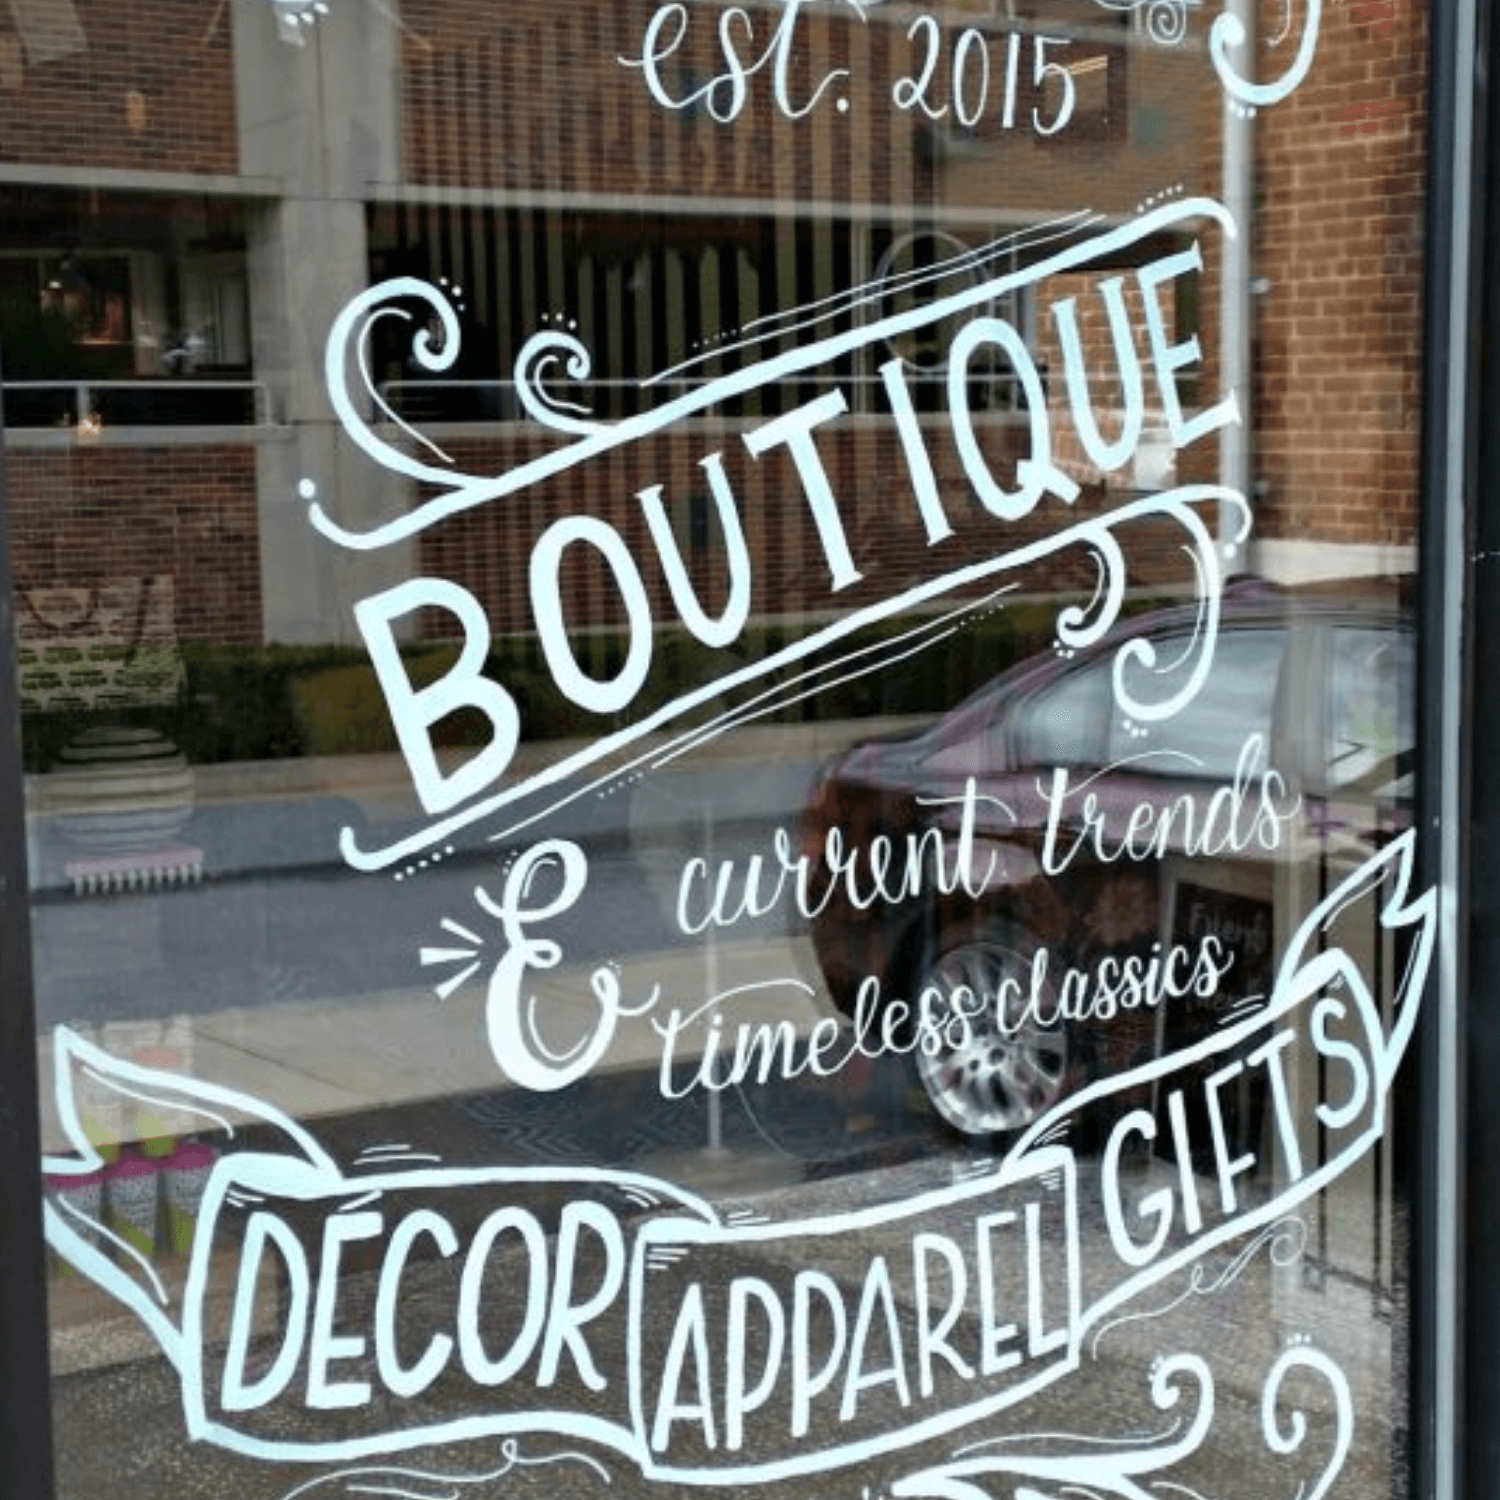 est. 2015
BOUTIQUE
& current trends
timeless classics
DÉCOR APPAREL GIFTS